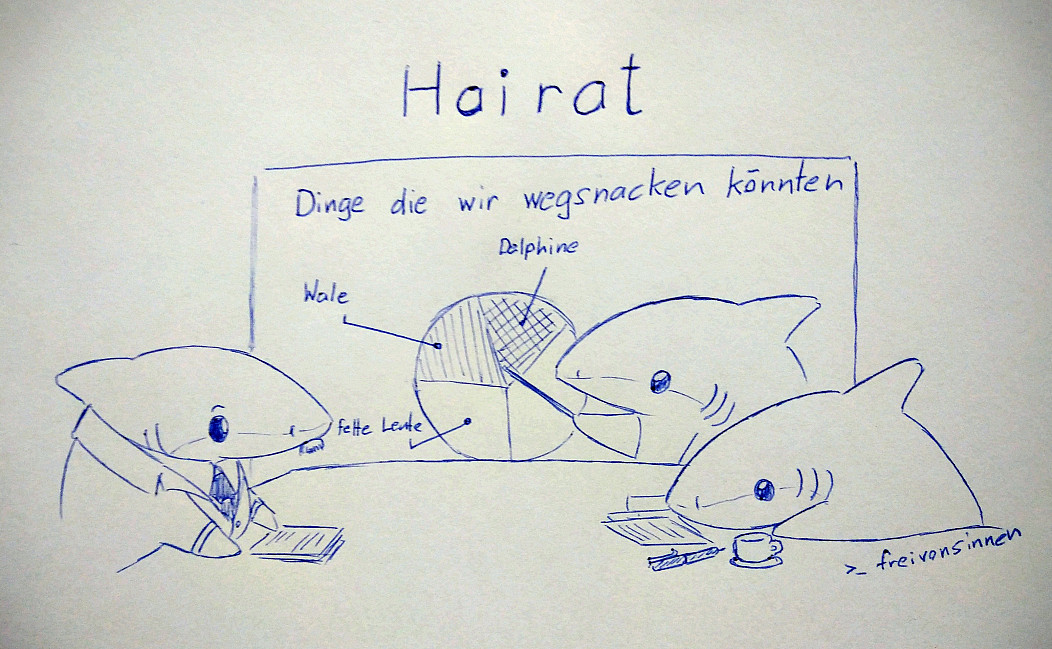 Hairat
Dinge die wir wegsnacken könnten
Delphine
Wale
fette Leute
>_ freivonsinnen